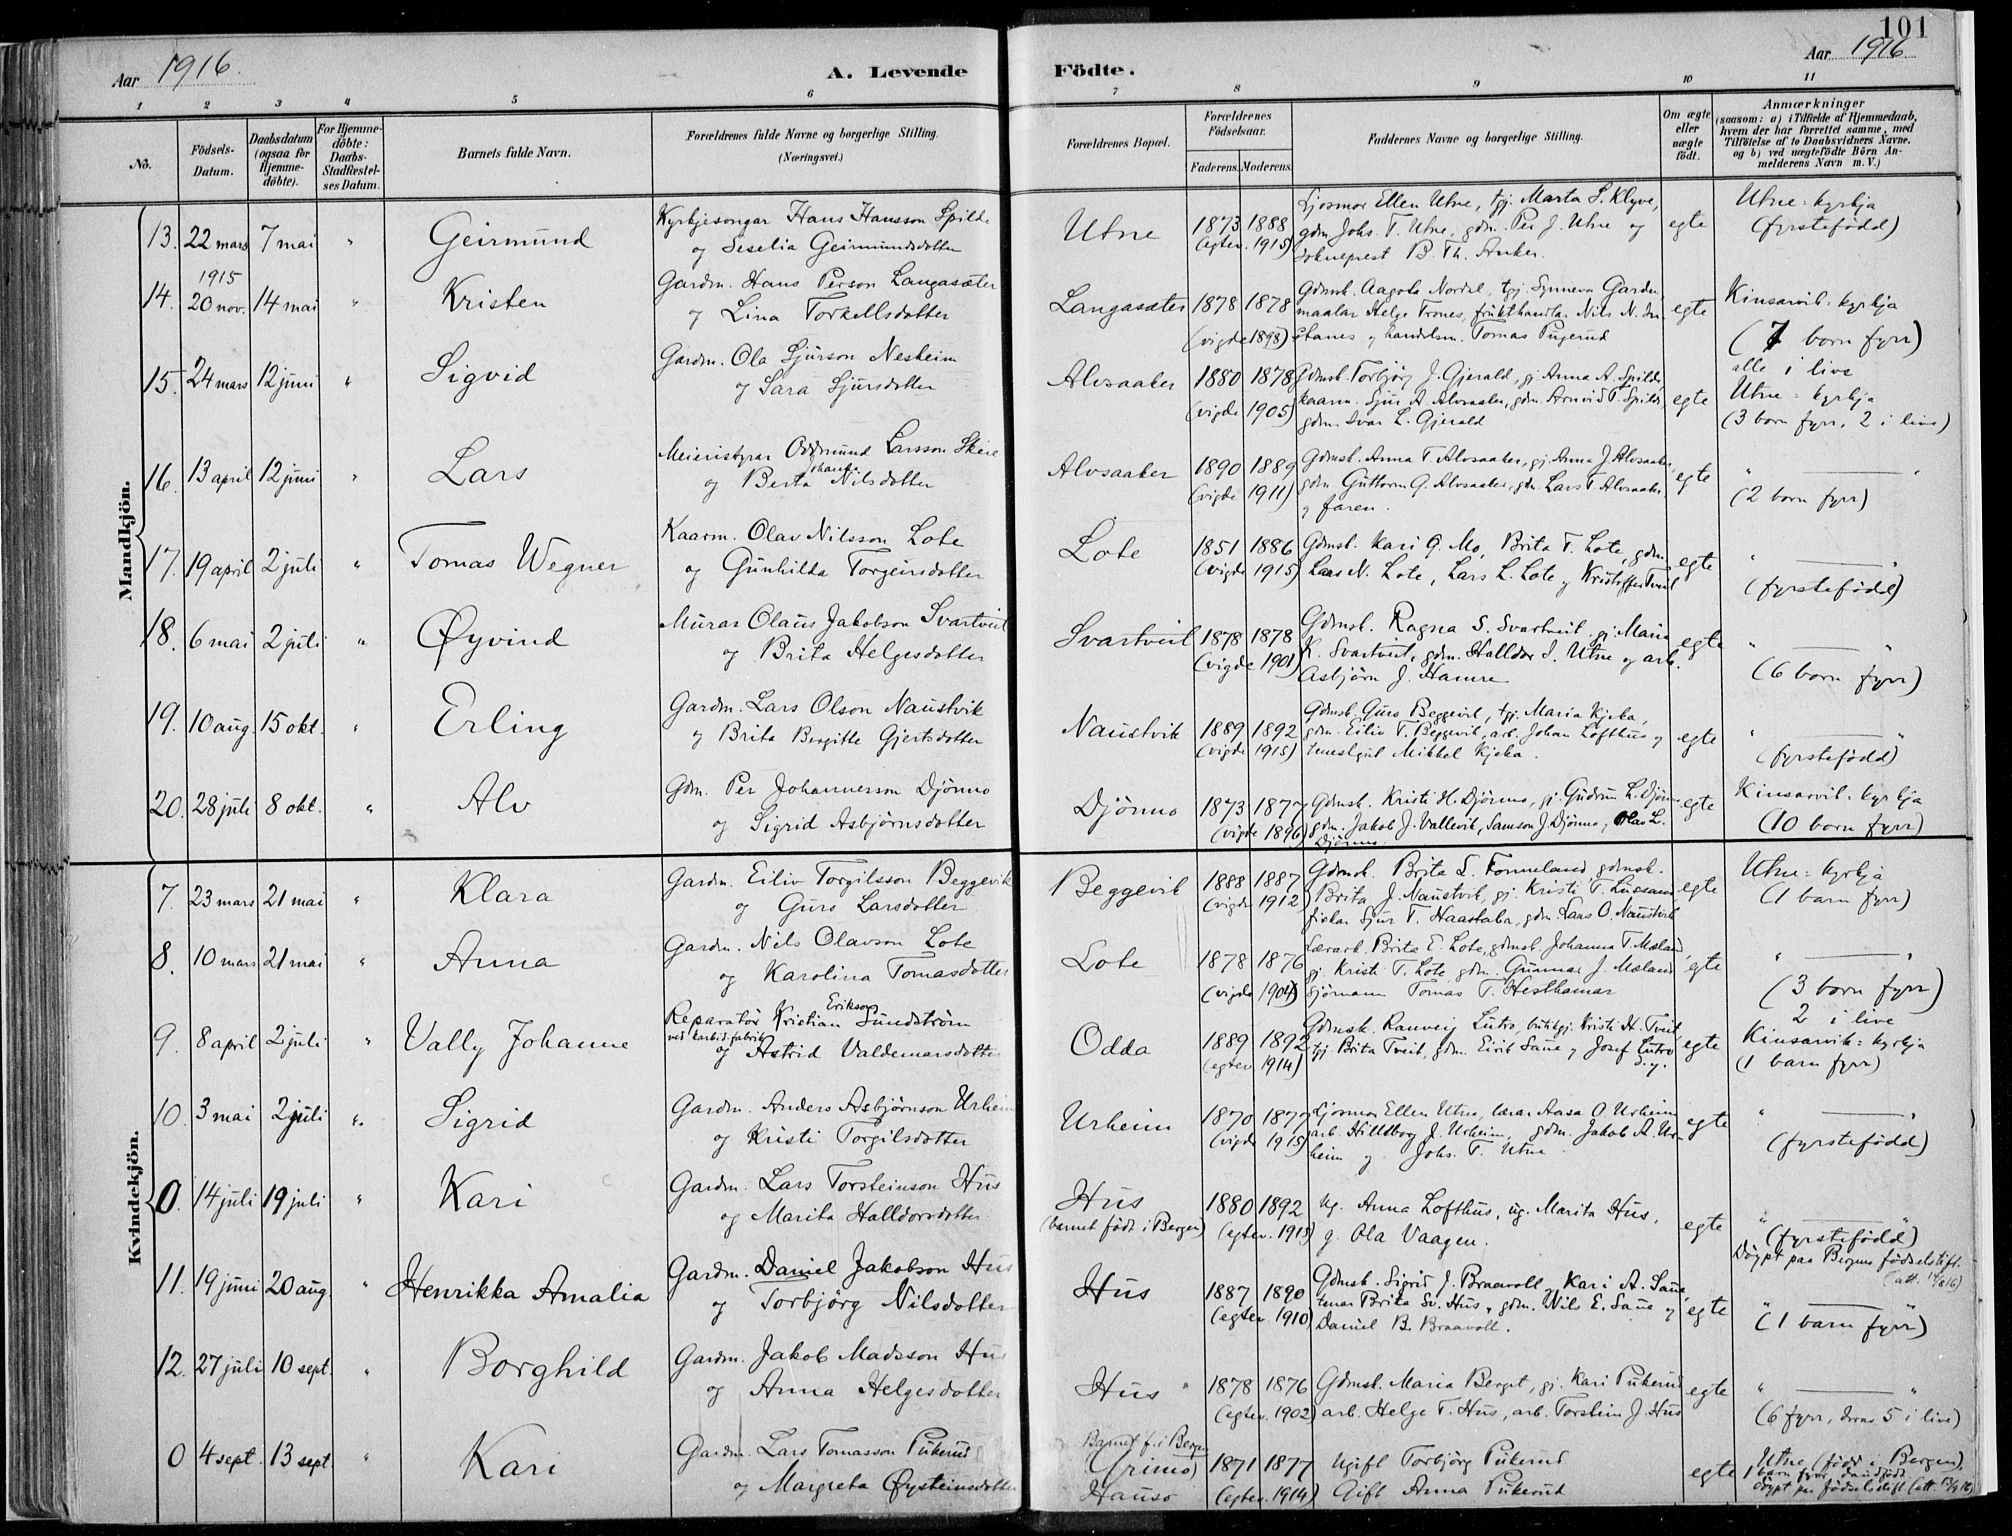 101
Aar 1916.
A. Levende Födte.
Aar 1916
1 2 3 4 5 6 7 8 9 10 11
No.
Födsels-Datum.
Daabsdatum (ogsaa for Hjemme-döbte).
For Hjemme-döbte: Daabs-Stadfæstel-ses Datum.
Barnets fulde Navn.
Forældrenes fulde Navne og borgerlige Stilling. (Næringsvei.)
Forældrenes Bopæl.
Forældrenes Födselsaar.
Faderens. Moderens.
Faddernes Navne og borgerlige Stilling.
Om ægte eller uægte födt.
Anmærkninger
(saasom: a) i Tilfælde af Hjemmedaab,
hvem der har forrettet samme, med
Tilföielse af to Daabsvidners Navne.
og b) ved uægtefödte Börn An-
melderens Navn m. V.)
Mandkjön.
13. 22 mars 7 mai " Geirmund Kyrkjesongar Hans Hansson Spilde Utne 1873 1888 Ljosmor Ellen Utne, tgj. Marta S. Klyve, egte Utne-kyrkja
og Seselia Geirmundsdotter (egtev. 1915) gdm. Johs. T. Utne, gdm. Per J. Utne og (fyrstefødd)
sokneprest B. Th. Anker.
1915
14. 20 nov. 14 mai " Kristen Gardm. Hans Person Langasæter Langasæter 1878 1878 Gdmsk. Aagota Nordal, tgj. Synneva Gardm. egte Kinsarvik-kyrkja
og Lina Torkellsdotter (vigde 1898) maalar Helge Trones, frukthandlar Nils N. (7 born fyrr)
og handelsm. Tomas Pugerud alle i live
15. 24 mars 12 juni " Sigvid Gardm. Ola Sjurson Nesheim Alvsaaker 1880 1878 Gdmsk. Torbjørg J. Gjerald, gj. Anna A. Spilde, egte Utne-kyrkja
og Sara Sjursdotter (vigde 1905) kaarm. Sjur A. Alvsaaker, gdm. Arnvid T. Spilde, (3 born fyrr, 2 i live)
gdm. Ivar L. Gjerald
16. 13 april 12 juni " Lars Meieristyrar Oddmund Larsson Skeie Alvsaaker 1890 1889 Gdmsk. Anna T. Alvsaaker, gj. Anna J. Alvsaaker, egte " "
og Berta Johanna Nilsdotter (vigde 1911) gdm. Guttorm G. Alvsaaker, gdm. Lars T. Alvsaaker (2 born fyrr)
og faren.
17. 19 april 2 juli " Tomas Wegner Kaarm. Olav Nilsson Lote Lote 1851 1886 Gdmsk. Kari G. Mo, Brita T. Lote, gdm. egte " "
og Gunhilda Torgeirsdotter (vigde 1915) Laas N. Lote, Lars L. Lote og Kristoffer Tveit (fyrstefødd)
18. 6 mai 2 juli " Øyvind Murar Olaus Jakobson Svartveit Svartveit 1878 1878 Gdmsk. Ragna S. Svartveit, gj. Maria egte " "
og Brita Helgesdotter (vigde 1901) K. Svartveit, gdm. Halldor S. Utne og arb. (6 born fyrr)
Asbjørn J. Hamre
19. 10 aug. 15 okt. " Erling Gardm. Lars Olson Naustvik Naustvik 1889 1892 Gdmsk. Guro Beggevik, tgj. Maria Kjeka, egte " "
og Brita Bergitte Gjertsdotter (vigde 1915) gdm. Eiliv T. Beggevik, arb. Johan Lofthus og (fyrstefødd)
tenestgut Mikkel Kjeka.
20. 28 juli 8 okt. " Alv Gdm. Per Johannesson Djönno Djönno 1873 1877 Gdmsk. Kristi H. Djönno, gj. Gudrun L. Djönno egte Kinsarvik-kyrkja
og Sigrid Asbjørnsdotter (vigde 1896) gdm. Jakob J. Vallevik, Samson J. Djönno, Olav L. (10 born fyrr)
Djönno.
Kvindekjön.
7. 23 mars 21 mai " Klara Gardm. Eiliv Torgilsson Beggevik Beggevik 1888 1887 Gdmsk. Brita L. Fonneland, gdmsk. egte Utne-kyrkja
og Guro Larsdotter (vigde 1912) Brita J. Naustvik, gj. Kristi T. (1 barn fyrr)
fiskar Sjur T. Haastabø, gdm. Lars O. Naustvik
8. 10 mars 21 mai " Anna Gardm. Nils Olavson Lote Lote 1878 1876 Lærark. Brita E. Lote, gdmsk. Johanna T. Mæland, egte " "
og Karolina Tomasdotter (vigde 1904) gj. Kristi T. Lote, gdm. Gunnar J. Mæland (3 born fyrr)
sjömann Tomas T. Hesthamar 2 i live
9. 8 april 2 juli " Vally Johanne Reparatør Kristian Erikson Sundström Odda 1889 1892 Gdmsk. Ranveig Lutro, butikgj. Kristi H. Tveit, egte Kinsarvik-kyrkja
ved karbidfabrik og Astrid Valdemarsdotter (egtev. 1914) tgj. Brita Tveit, gdm. Eirik Saue og Josef Lutro d.y. (1 barn fyrr)
10. 3 mai 2 juli " Sigrid Gardm. Anders Asbjörnson Urheim Urheim 1870 1877 Ljosmor Ellen Utne, lærar Aasa O. Urheim egte " "
og Kristi Torgilsdotter (vigde 1915) arb. Hilldborg J. Urheim, gdm. Jakob A. Ur- (fyrstefødd)
heim og Johs. T. Utne
0. 14 juli 19 juli " Kari Gardm. Lars Torsteinson Hus Hus 1880 1892 ug. Anna Lofthus, ug. Marita Hus, egte " "
og Marita Halldorsdotter (barnet født i Bergen) (egtev. 1915) g. Ola Vaagen. (fyrstefødd)
Döypt paa Bergens födselstift.
(att. 14/8 16)
11. 19 juni 20 aug. " Henrikka Amalia Gardm. Daniel Jakobson Hus Hus 1887 1890 Gdmsk. Sigrid J. Braavoll, Kari A. Saue, egte " "
og Torbjörg Nilsdotter (egtev. 1910) tenar Brita Sv. Hus, gdm. Nils E. Saue og (1 barn fyrr)
Daniel B. Braavoll.
12. 27 juli 10 sept. " Borghild Gardm. Jakob Madsson Hus Hus 1878 1876 Gdmsk. Maria Berget, gj. Kari Pukerud egte " "
og Anna Helgesdotter (egtev. 1902) arb. Helge T. Hus, arb. Torstein J. Hus (6 fyrr, derav 5 i live)
0 4 sept. 13 sept. " Kari Gardm. Lars Tomasson Pukerud Barnet f. i Bergen 1871 1877 Ugift Torbjörg Pukerud egte Utne (född i Bergen)
og Margreta Øysteinsdotter (Grimo) Hauso (egtev. 1914) Gift Anna Pukerud 1 barn fyrr, daudfødt
döypt paa födselsstift. (att. 13/9 16)